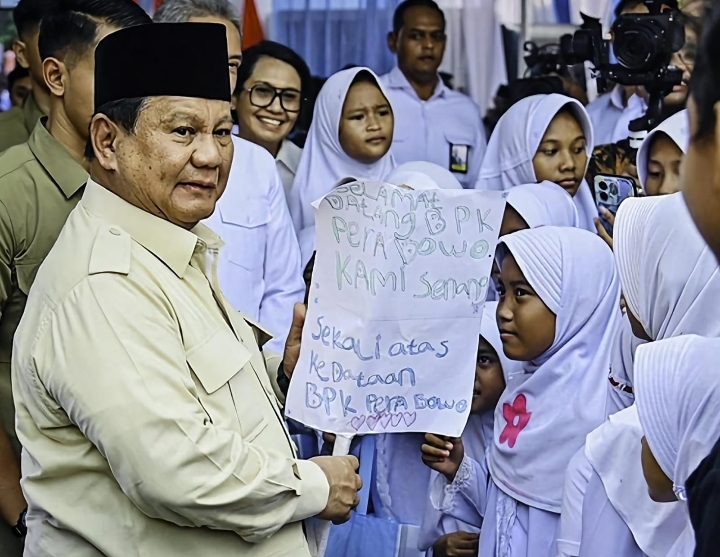 SELAMAT
DATANG BPK
PERA BOWO.
KAMI Senang
Sekali atas
keDataan
BPK PERA BOWO